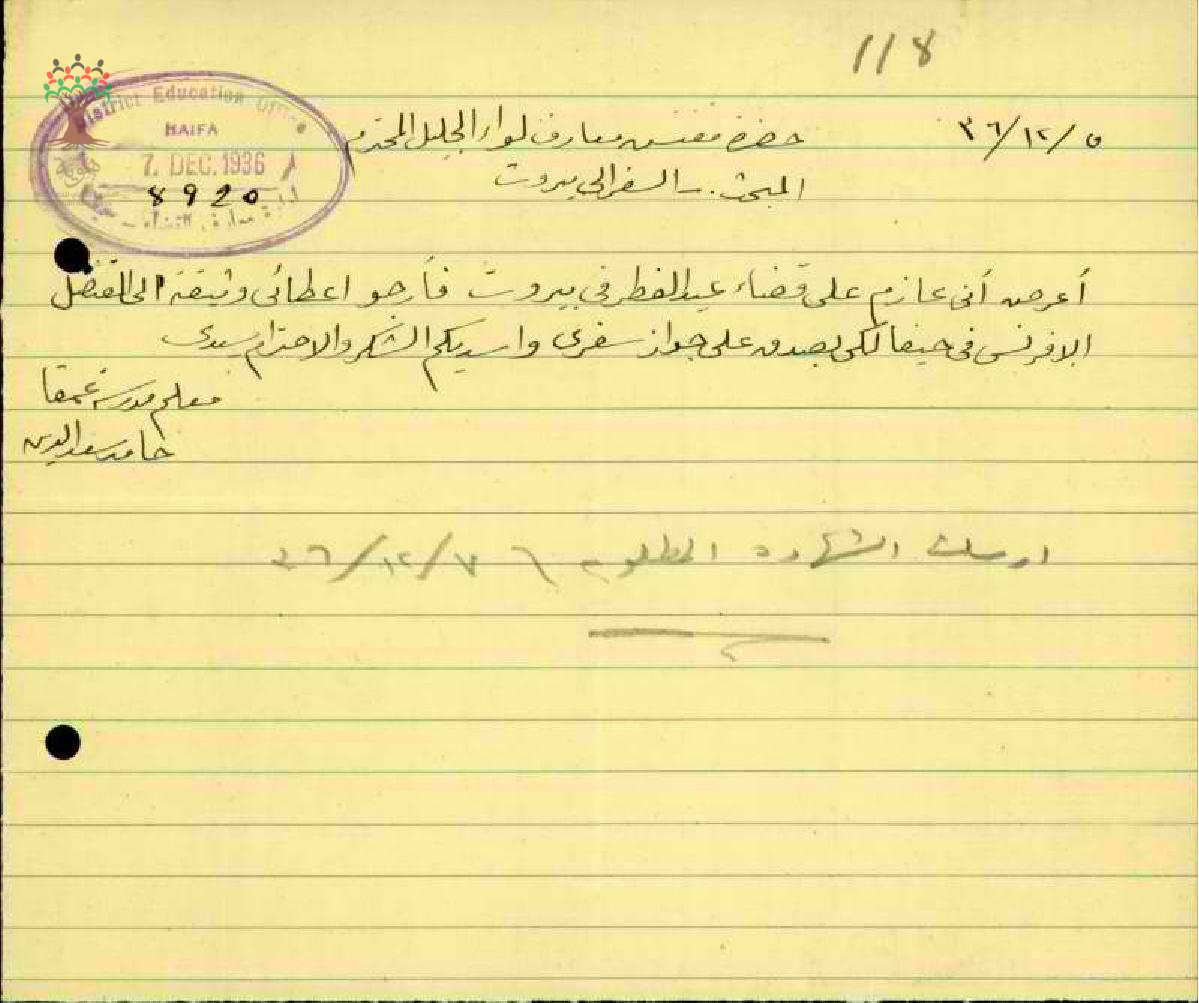 118
٣٦/١٢/٥
حضرة مفتش معارف لواء الجليل المحترم
المبحث :- السفر الى بيروت
District Education Office
HAIFA
7. DEC. 1936
8920
إدارة معارف القضاء - حيفا
أعرض أني عازم على قضاء عيد الفطر في بيروت فأرجو اعطائي وثيقة الى القنصل
الافرنسي في حيفا لكي يصدق على جواز سفري واسديكم الشكر والاحترام سيدي
معلم مدرسة عمقا
حامد سعد الدين
ارسلت الشهادة المطلوبة ٣٦/١٢/٧